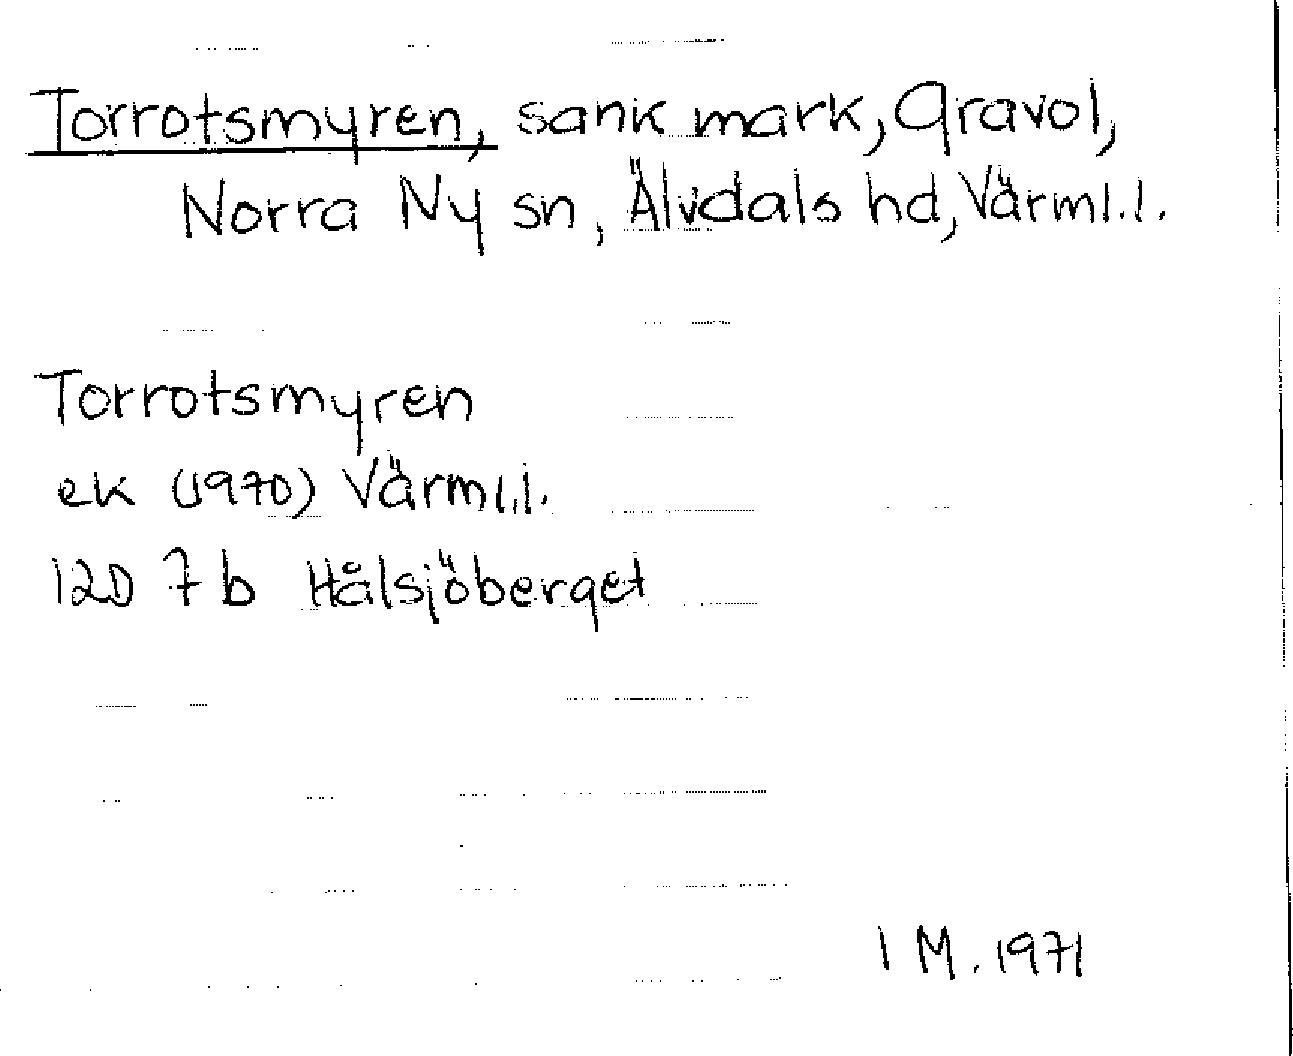 Torrotsmyren, sank mark, Gravol,
Norra Ny sn, Älvdals hd, Värml.l.
Torrotsmyren
ek (1970) Värml.l.
12D 7b Hålsjöberget
I M. 1971